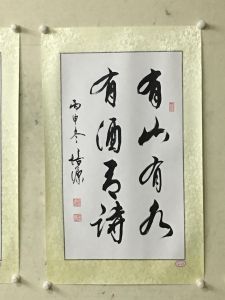 有山有水
有酒有诗
丙申冬培源